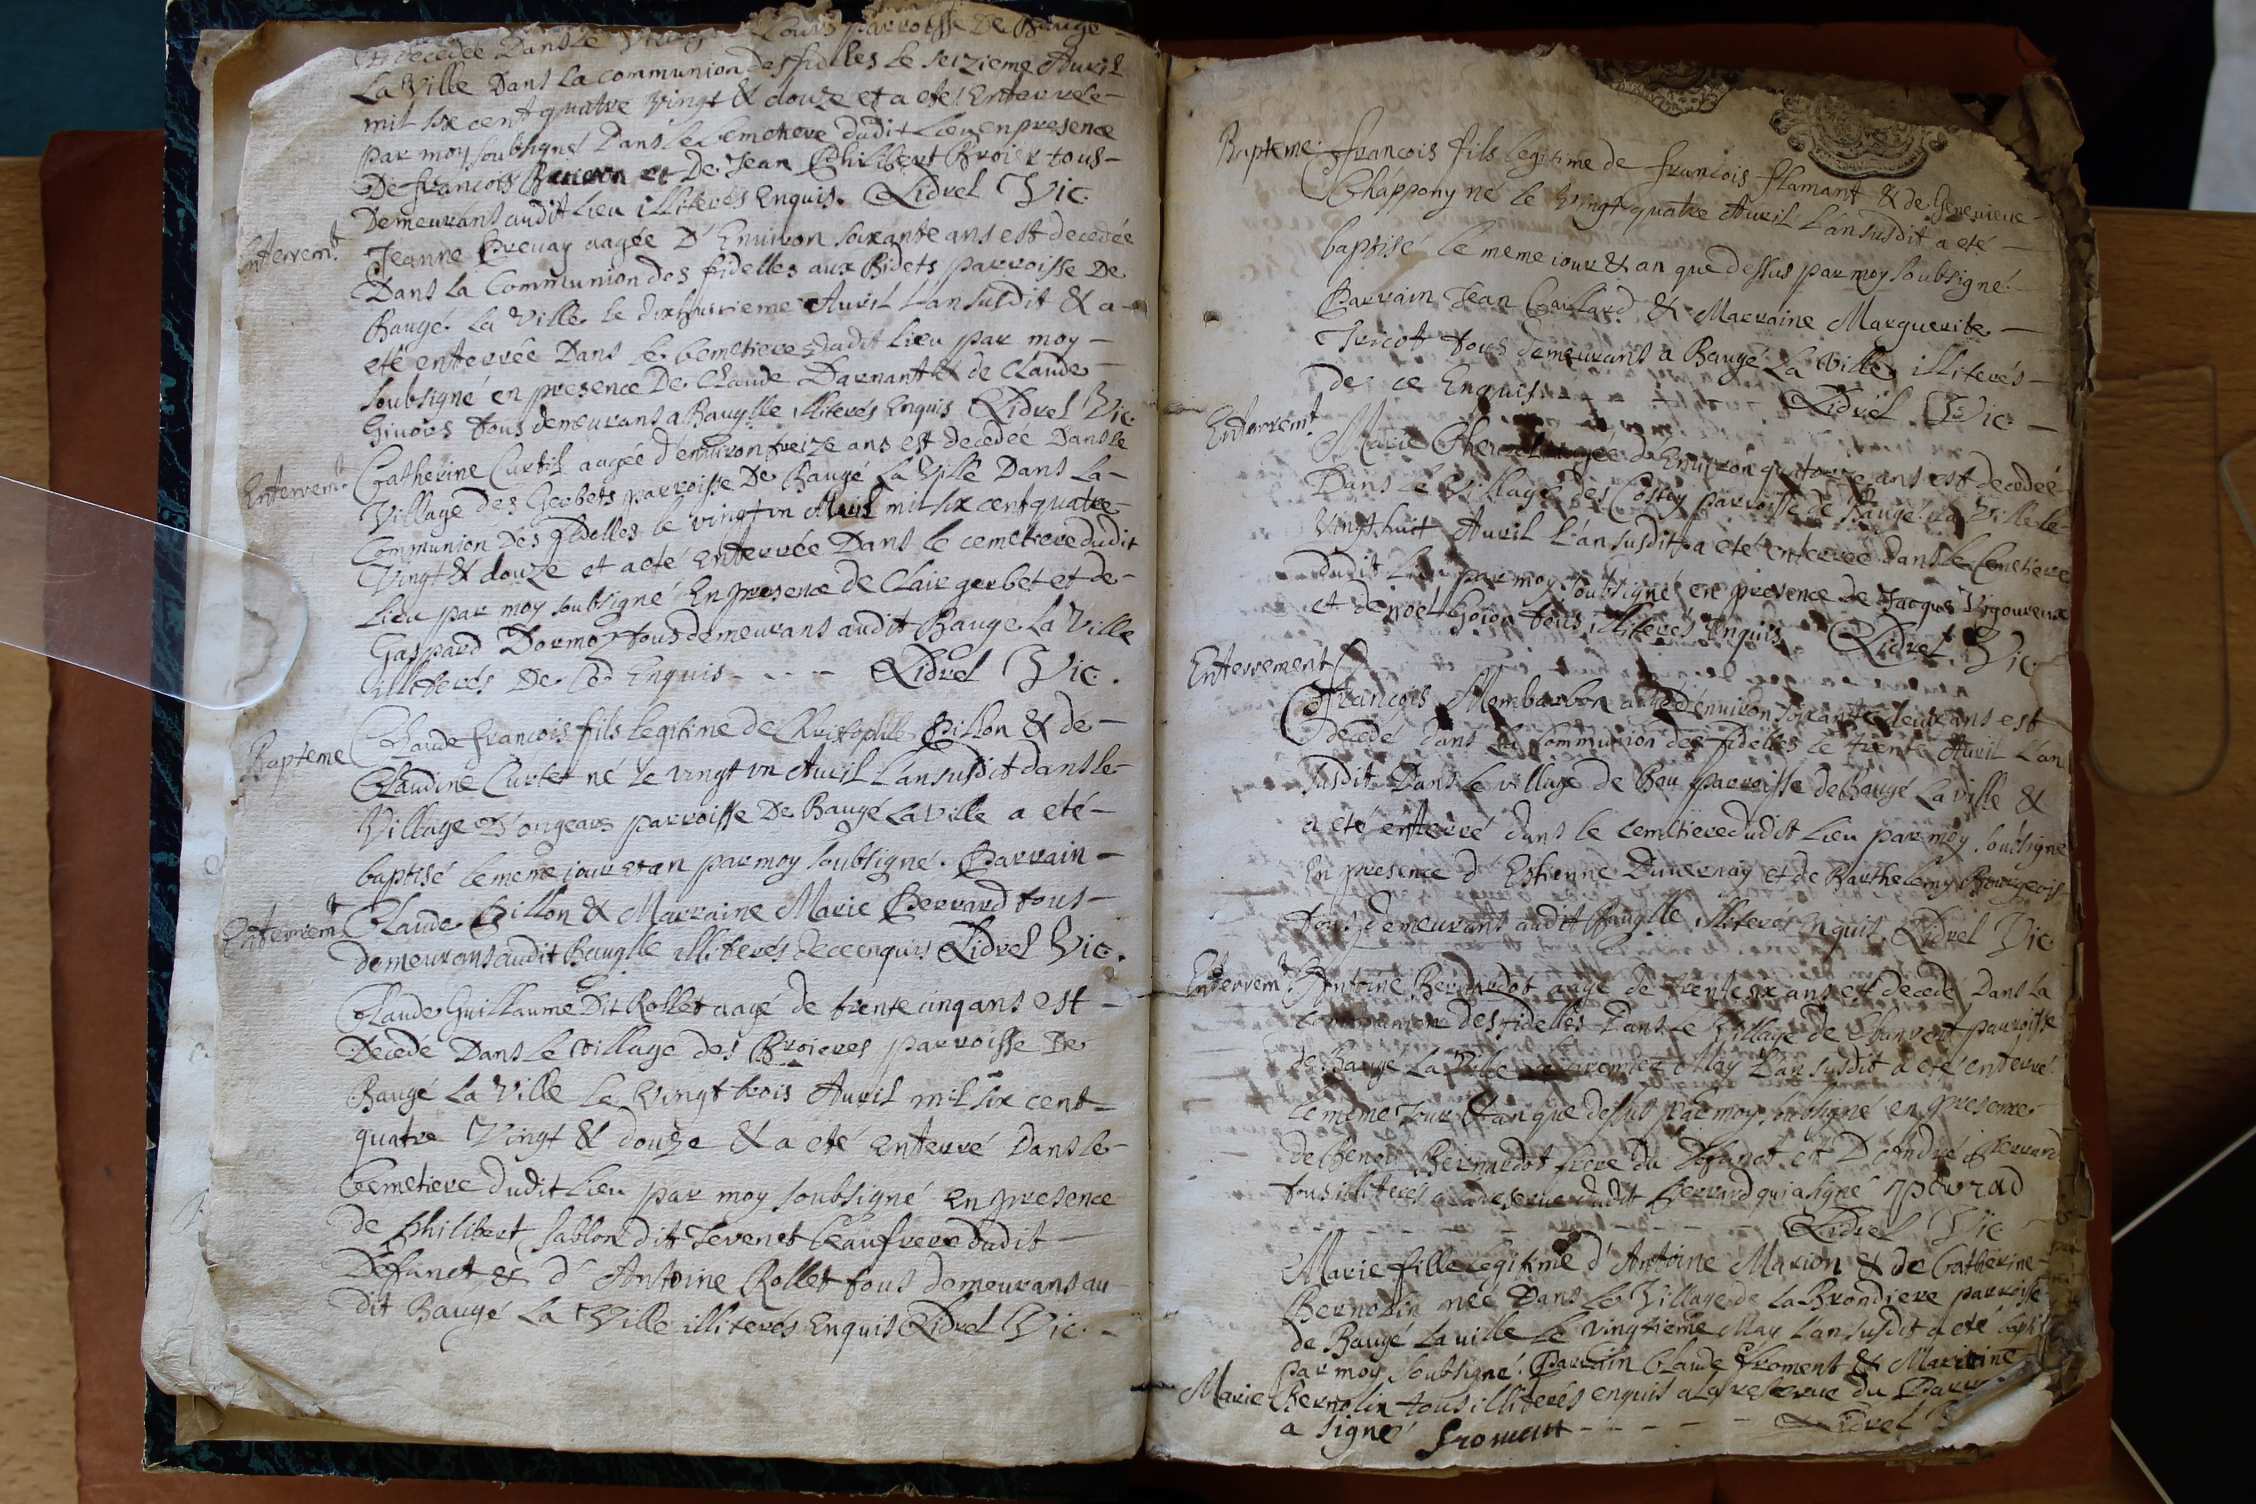 decedée Dans le parroisse De Baugé
La Ville Dans La communion des fidelles le seizieme Auril
mil six cent quatre Vingt & douze et a eté Enterrée
par moy soubsigné Dans le Cemetiere dudit Lieu en presence
De francois et De Jean Philibert Broier tous
Demeurans audit Lieu illiterés Enquis. Lidrel Vic.
Enterrem.t Jeanne Preuay aagée D'Enuiron soixante ans est decedée
Dans La Communion des fidelles aux Bidets parroisse De
Baugé La Ville le dixhuitieme Auril L'an susdit & a
eté enterrée Dans le Cemetiere dudit Lieu par moy
soubsigné en presence De Claude Darnant & de Claude
Giuors tous demeurans a Bauglle illiterés Enquis Lidrel Vic.
Enterrem.t Catherine Curtil aagée d'enuiron treize ans est decedée Dans le
Village des Gerbets parroisse De Baugé La Ville Dans La
Communion Des fidelles le vingt un Auril mil six cent quatre
Vingt & douze et a eté Enterrée Dans le cemetiere dudit
Lieu par moy soubsigné En presence de Clair gerbet et de
Gaspard Dormoy tous demeurans audit Baugé La Ville
illiterés De Ce Enquis - - - - Lidrel Vic.
Bapteme Claude francois fils legitime de Christophle Pillon & de
Claudine Curtet né le vingt un Auril L'an susdit dans le
Village D'ongears parroisse De Baugé La Ville a eté
baptisé le meme iour et an par moy soubsigné. Parrain
Claude Pillon & Marraine Marie Perrard tous
demeurans audit Bauglle illiterés de ce enquis Lidrel Vic.
Enterrem.t
Claude Guillaume Dit Rollet aagé de trente cinq ans est
Decedé Dans le village des Broieres parroisse De
Baugé La Ville le Vingt trois Auril mil six cent
quatre Vingt & douze & a eté Enterré Dans le
Cemetiere dudit Lieu par moy soubsigné En presence
de Philibert Sablon dit Teuenet beaufrere dudit
Defunct & d'Antoine Rollet tous demeurans au
dit Baugé La Ville illiterés Enquis Lidrel Vic.
Bapteme francois fils legitime de francois flamant & de Geneuieue
Chappony né le Vingt quatre Auril L'an susdit a eté
baptisé le meme iour & an que dessus par moy soubsigné.
Parrain Jean Gaillard & Marraine Marguerite
Tricot tous demeurans a Baugé La Ville illiterés
de ce Enquis - - - - Lidrel Vic.
Enterrem.t Marie aagée d'Enuiron quatorze ans est decedée
Dans le Village des Costey parroisse de Baugé La Ville le
Vingt huit Auril L'an susdit & a eté enterrée dans le Cemetiere
dudit Lieu par moy soubsigné en presence de Jacques Vigoureux
et de noel Goion tous illiterés Enquis Lidrel Vic.
Enterrement
francois Mombarbon aagé d'enuiron soixante deux ans est
Decedé dans la Communion des fidelles le trente Auril L'an
susdit Dans le village de Beu parroisse de Baugé La ville &
a eté enterré dans le Cemetiere dudit Lieu par moy soubsigné
En presence d'Estienne Duuernay et de Barthelemy Bourgeois
tous demeurans audit Bauglle illiterés Enquis. Lidrel Vic
Enterrem.t Antoine Bernardot aagé de trente six ans est decedé Dans La
Communion des fidelles Dans le Village de Chanuent parroisse
de Baugé La Ville le premier May L'an susdit a eté enterré
le meme Jour & an que dessus par moy soubsigné en presence
de Benoit Bernardot frere du Defunct et D'André Perrard
tous illiterés a la reserue dudit Perrard qui a signé
Lidrel Vic
Marie fille legitime d'Antoine Marion & de Catherine
Bernolin née Dans le Village de La Brondiere parroisse
de Baugé La ville le vingtieme May L'an susdit a eté
par moy soubsigné. Parrain Claude froment & Marraine
Marie Bernolin tous illiterés enquis a la reserue du
a signé froment - - - - Lidrel